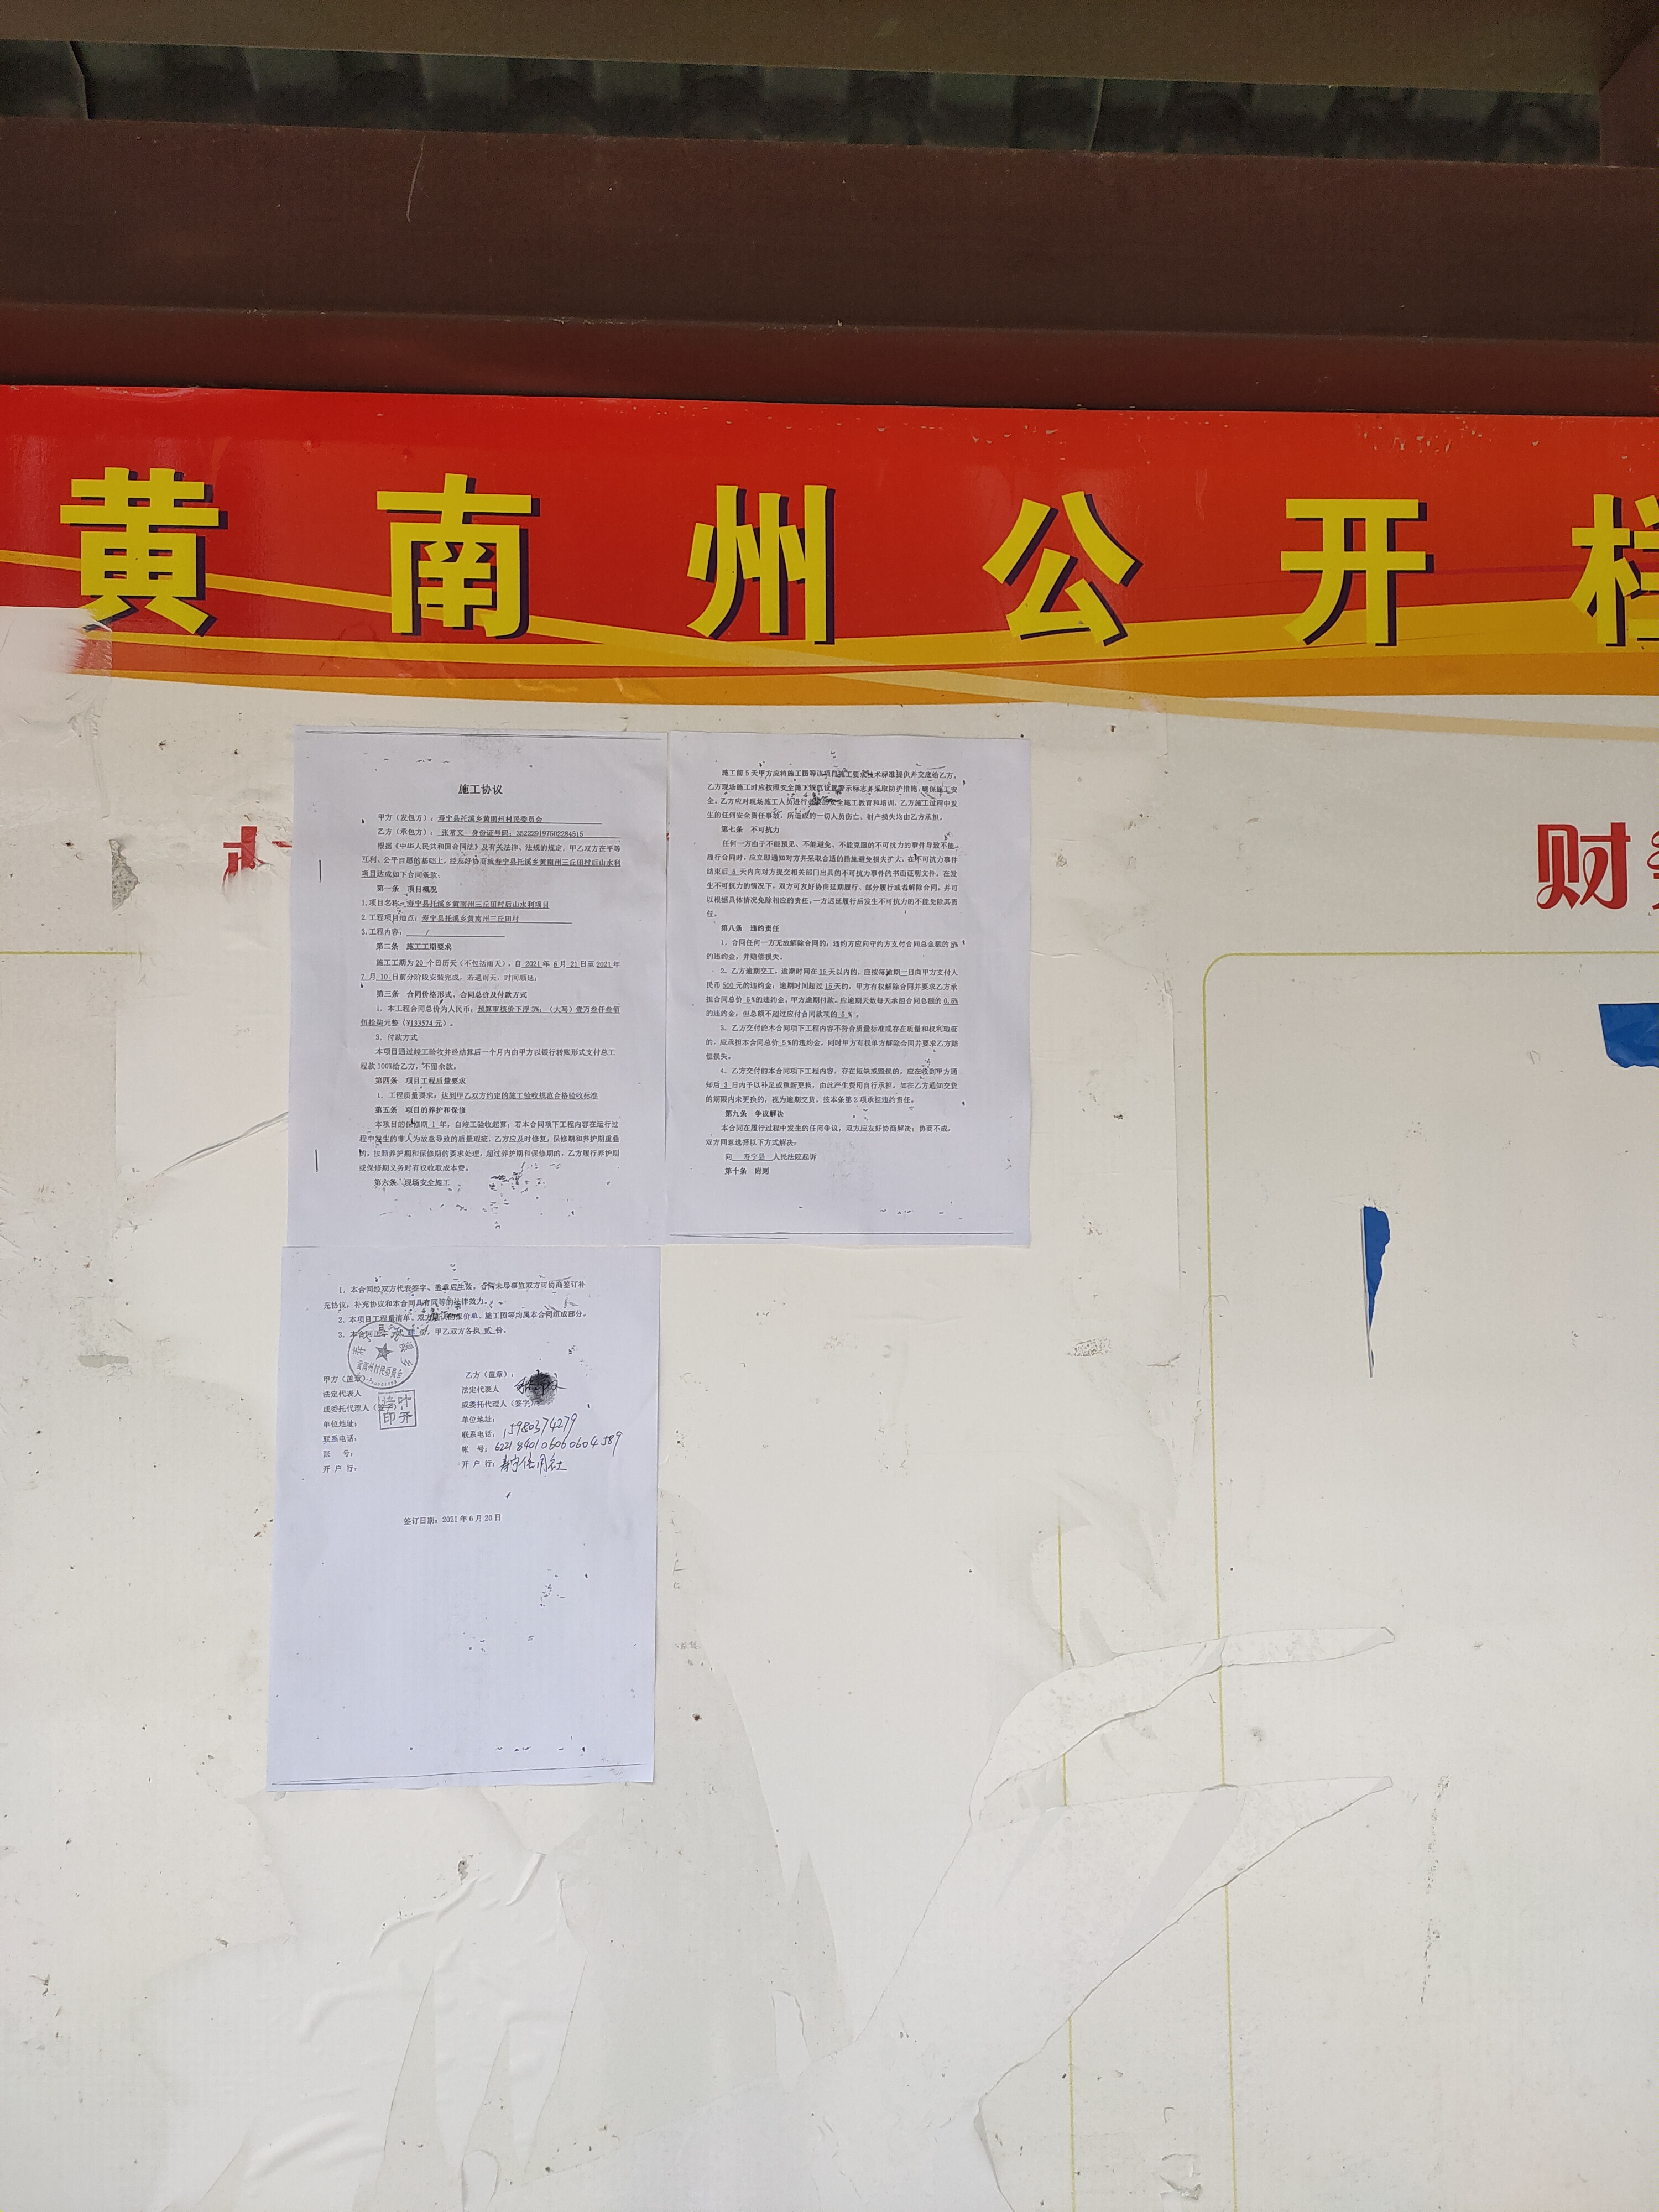 黄南州公开栏
财
施工协议
甲方（发包方）：寿宁县托溪乡黄南州村民委员会
乙方（承包方）：张常文 身份证号码：352229197502284515
根据《中华人民共和国合同法》及有关法律、法规的规定，甲乙双方在平等
互利、公平自愿的基础上，经友好协商就寿宁县托溪乡黄南州三丘田村后山水利
项目达成如下合同条款：
第一条 项目概况
1.项目名称：寿宁县托溪乡黄南州三丘田村后山水利项目
2.工程项目地点：寿宁县托溪乡黄南州三丘田村
3.工程内容： /
第二条 施工工期要求
施工工期为 20 个日历天（不包括雨天），自 2021 年 6 月 21 日至 2021 年
7 月 10 日前分阶段安装完成，若遇雨天，时间顺延；
第三条 合同价格形式、合同总价及付款方式
1．本工程合同总价为人民币：预算审核价下浮 3%；（大写）壹万叁仟叁佰
伍拾柒元整（¥133574 元）。
3．付款方式
本项目通过竣工验收并经结算后一个月内由甲方以银行转账形式支付总工
程款 100%给乙方，不留余款。
第四条 项目工程质量要求
1．工程质量要求：达到甲乙双方约定的施工验收规范合格验收标准
第五条 项目的养护和保修
本项目的保修期 1 年，自竣工验收起算；若本合同项下工程内容在运行过
程中发生的非人为故意导致的质量瑕疵，乙方应及时修复，保修期和养护期重叠
的，按照养护期和保修期的要求处理，超过养护期和保修期的，乙方履行养护期
或保修期义务时有权收取成本费。
第六条 现场安全施工
施工前 5 天甲方应将施工图等该项目施工要求技术标准提供并交底给乙方。
乙方现场施工时应按照安全施工规范设置警示标志并采取防护措施，确保施工安
全。乙方应对现场施工人员进行必要的安全施工教育和培训，乙方施工过程中发
生的任何安全责任事故，所造成的一切人员伤亡、财产损失均由乙方承担。
第七条 不可抗力
任何一方由于不能预见、不能避免、不能克服的不可抗力的事件导致不能
履行合同时，应立即通知对方并采取合适的措施避免损失扩大，在不可抗力事件
结束后 5 天内向对方提交相关部门出具的不可抗力事件的书面证明文件。在发
生不可抗力的情况下，双方可友好协商延期履行，部分履行或者解除合同，并可
以根据具体情况免除相应的责任。一方迟延履行后发生不可抗力的不能免除其责
任。
第八条 违约责任
1．合同任何一方无故解除合同的，违约方应向守约方支付合同总金额的 5%
的违约金，并赔偿损失。
2．乙方逾期交工，逾期时间在 15 天以内的，应按每逾期一日向甲方支付人
民币 500 元的违约金，逾期时间超过 15 天的，甲方有权解除合同并要求乙方承
担合同总价 5%的违约金。甲方逾期付款，应逾期天数每天承担合同总额的 0.5%
的违约金，但总额不超过应付合同款项的 5% 。
3．乙方交付的本合同项下工程内容不符合质量标准或存在质量和权利瑕疵
的，应承担本合同总价 5%的违约金，同时甲方有权单方解除合同并要求乙方赔
偿损失。
4．乙方交付的本合同项下工程内容，存在短缺或毁损的，应在收到甲方通
知后 3 日内予以补足或重新更换，由此产生费用自行承担。如在乙方通知交货
的期限内未更换的，视为逾期交货。按本条第 2 项承担违约责任。
第九条 争议解决
本合同在履行过程中发生的任何争议，双方应友好协商解决；协商不成，
双方同意选择以下方式解决：
向 寿宁县 人民法院起诉
第十条 附则
1．本合同经双方代表签字、盖章后生效。合同未尽事宜双方可协商签订补
充协议，补充协议和本合同具有同等的法律效力。
2．本项目工程量清单、双方确认的报价单、施工图等均属本合同组成部分。
3．本合同正本 肆 份，甲乙双方各执 贰 份。
黄南州村民委员会
甲方（盖章）：
法定代表人
或委托代理人（签字）
单位地址：
联系电话：
账 号：
开 户 行：
叶开
印
乙方（盖章）：
法定代表人
或委托代理人（签字）
单位地址：
联系电话：15980374279
帐 号：6221840106060604589
开 户 行：寿宁信用社
签订日期：2021 年 6 月 20 日